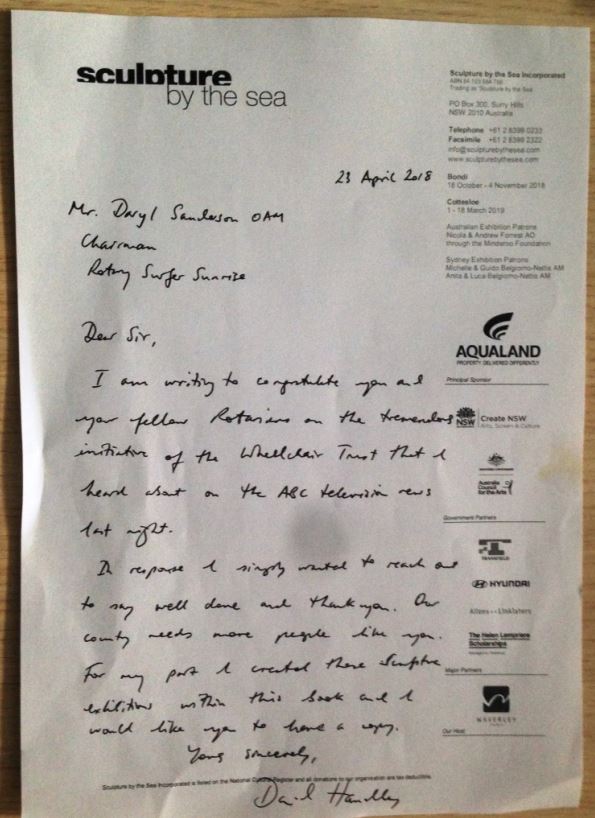 sculpture
by the sea
23 April 2018
Mr. Daryl Sanderson OAM
Chairman
Rotary Surfer Sunrise
Dear Sir,
I am writing to congratulate you and
your fellow Rotarians on the tremendous
initiative of the Wheelchair Trust that I
heard about on the ABC television news
last night.
In response I simply wanted to reach out
to say well done and thank you. Our
country needs more people like you.
For my part I created these sculpture
exhibitions within this book and I
would like you to have a copy.
Yours sincerely,
David Handley
Sculpture by the Sea Incorporated
Trading as 'Sculpture by the Sea'
PO Box 300, Surry Hills
NSW 2010 Australia
Telephone +61 2 8399 0233
Facsimile +61 2 8399 2322
info@sculpturebythesea.com
www.sculpturebythesea.com
Bondi
18 October - 4 November 2018
Cottesloe
1 - 18 March 2019
Australian Exhibition Patrons
Nicola & Andrew Forrest AO
through the Minderoo Foundation
Sydney Exhibition Patrons
Michelle & Guido Belgiorno-Nettis AM
Anita & Luca Belgiorno-Nettis AM
AQUALAND
PROPERTY, DELIVERED DIFFERENTLY
Principal Sponsor
NSW
Create NSW
Arts, Screen & Culture
Australia
Council
for the Arts
Government Partners
TRANSFIELD
HYUNDAI
Allens Linklaters
The Helen Lempriere
Scholarships
Major Partners
WAVERLEY
Our Host
Sculpture by the Sea Incorporated is listed on the National Cultural Register and all donations to our organisation are tax deductible.